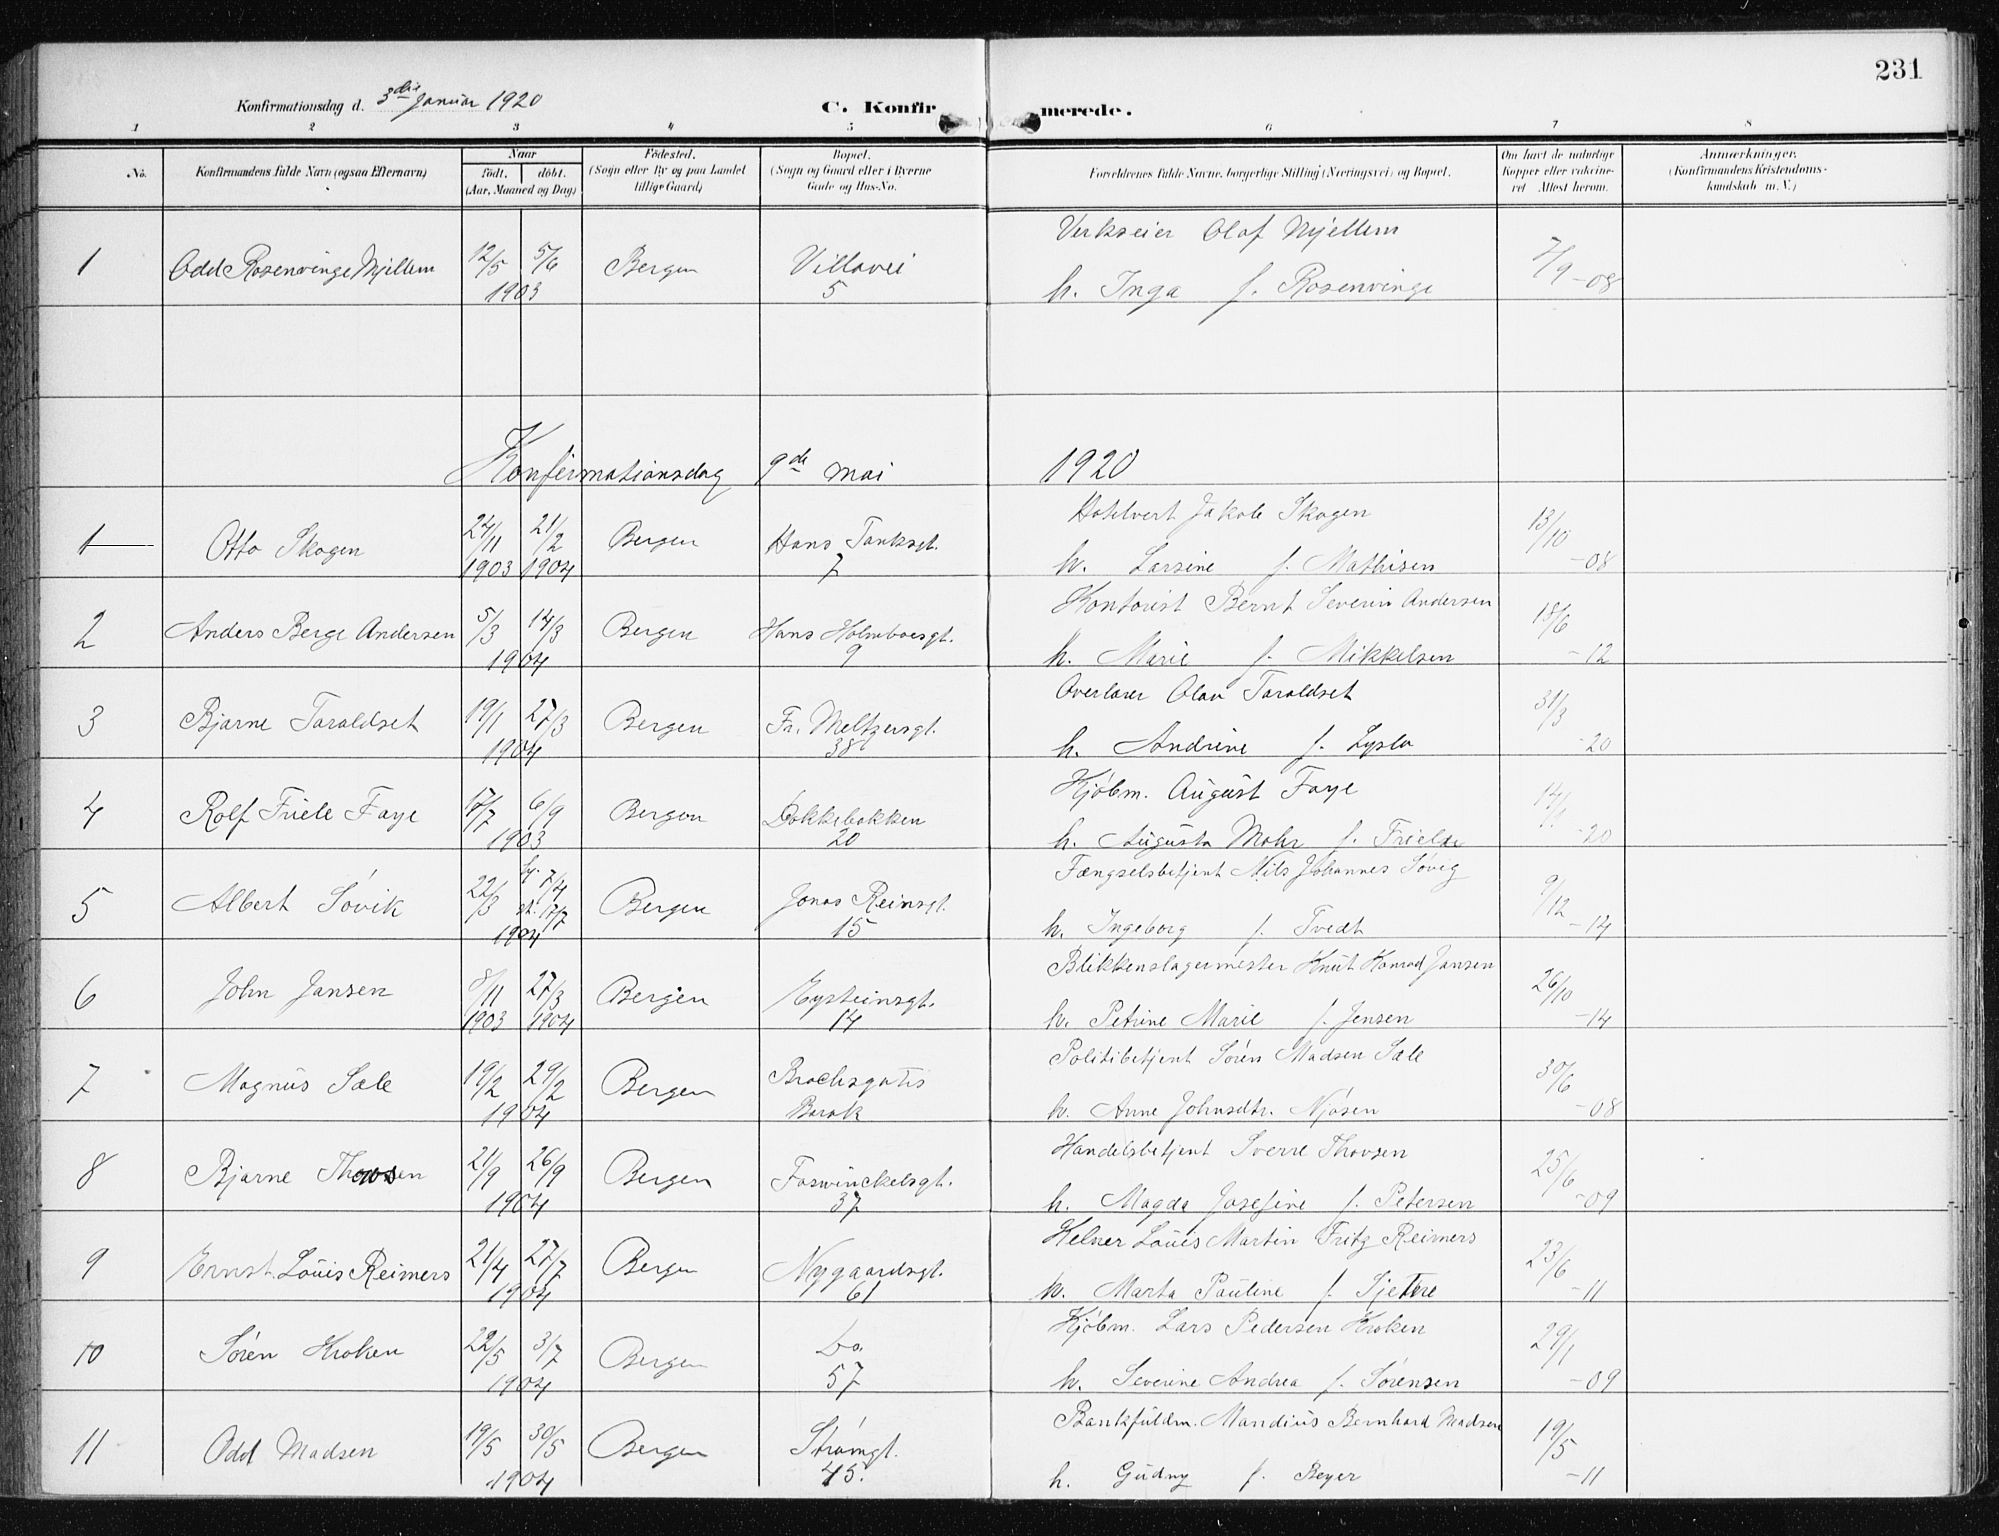 231
Konfirmationsdag d. 3die Januar 1920 C. Konfirmerede.
1 2 3 4 5 6 7 8
No. Konfirmandens fulde Navn (ogsaa Efternavn) Naar født. døbt. (Aar, Maaned og Dag) Fødested. (Sogn eller By og paa Landet tillige Gaard) Bopæl. (Sogn og Gaard eller i Byerne Gade og Hus-No. Forældrenes fulde Navne, borgerlige Stilling (Næringsvei) og Bopæl. Om havt de naturlige Kopper eller vakcineret Attest herom. Anmærkninger. (Konfirmandens Kristendomskundskab m. V.)
1 Odd Rosenvinge Mjellem 12/5 5/6 1903 Bergen Villavei 5 Verkseier Olaf Mjellem 7/9 -08
h. Inga f. Rosenvinge
Konfirmationsdag 9de mai 1920
1 Otto Skogen 24/11 1903 21/2 1904 Bergen Hans Tanksgt. 7 Hotelvert Jakob Skogen 13/10 -08
h. Larsine f. Mathisen
2 Anders Berge Andersen 5/3 14/3 1904 Bergen Hans Holmboesgt. 9 Kontorist Bernt Severin Andersen 18/6 -12
h. Marie f. Mikkelsen
3 Bjarne Taraldset 19/1 27/3 1904 Bergen Fr. Meltzersgt. 38 Overlærer Olav Taraldset 31/3 -20
h. Andrine f. Lyslo
4 Rolf Friele Faye 17/7 6/9 1903 Bergen Dokkebakken 20 Kjøbm. August Faye 14/ -20
h. Augusta Mohr f. Friele
5 Albert Søvik 22/3 hj. 7/4 st. 17/7 1904 Bergen Jonas Reinsgt. 15 Fængselsbetjent Nils Johannes Søvig 9/12 -14
h. Ingeborg f. Tvedt
6 John Jansen 8/11 1903 27/3 1904 Bergen Eysteinsgt. 14 Blikkenslagermester Knut Konrad Jansen 26/10 -14
h. Petrine Marie f. Jensen
7 Magnus Sæle 19/2 29/2 1904 Bergen Brochsgates Barak Politibetjent Søren Madsen Sæle 30/6 -08
h. Anne Johnsdtr. Njøsen
8 Bjarne Thowsen 21/9 26/9 1904 Bergen Foswinckelsgt. 37 Handelsbetjent Sverre Thowsen 25/6 -09
h. Magda Josefine f. Petersen
9 Ernst Louis Reimers 21/4 27/7 1904 Bergen Nygaardsgt. 61 Kelner Louis Martin Fritz Reimers 23/6 -11
h. Marta Pauline f. Tjetere
10 Søren Kroken 22/5 3/7 1904 Bergen Do. 57 Kjøbm. Lars Pedersen Kroken 29/1 -09
h. Severine Andrea f. Sørensen
11 Odd Madsen 19/5 30/5 1904 Bergen Strømgt. 45. Bankfuldm. Mandius Bernhard Madsen 19/5 -11
h. Gudny f. Beyer